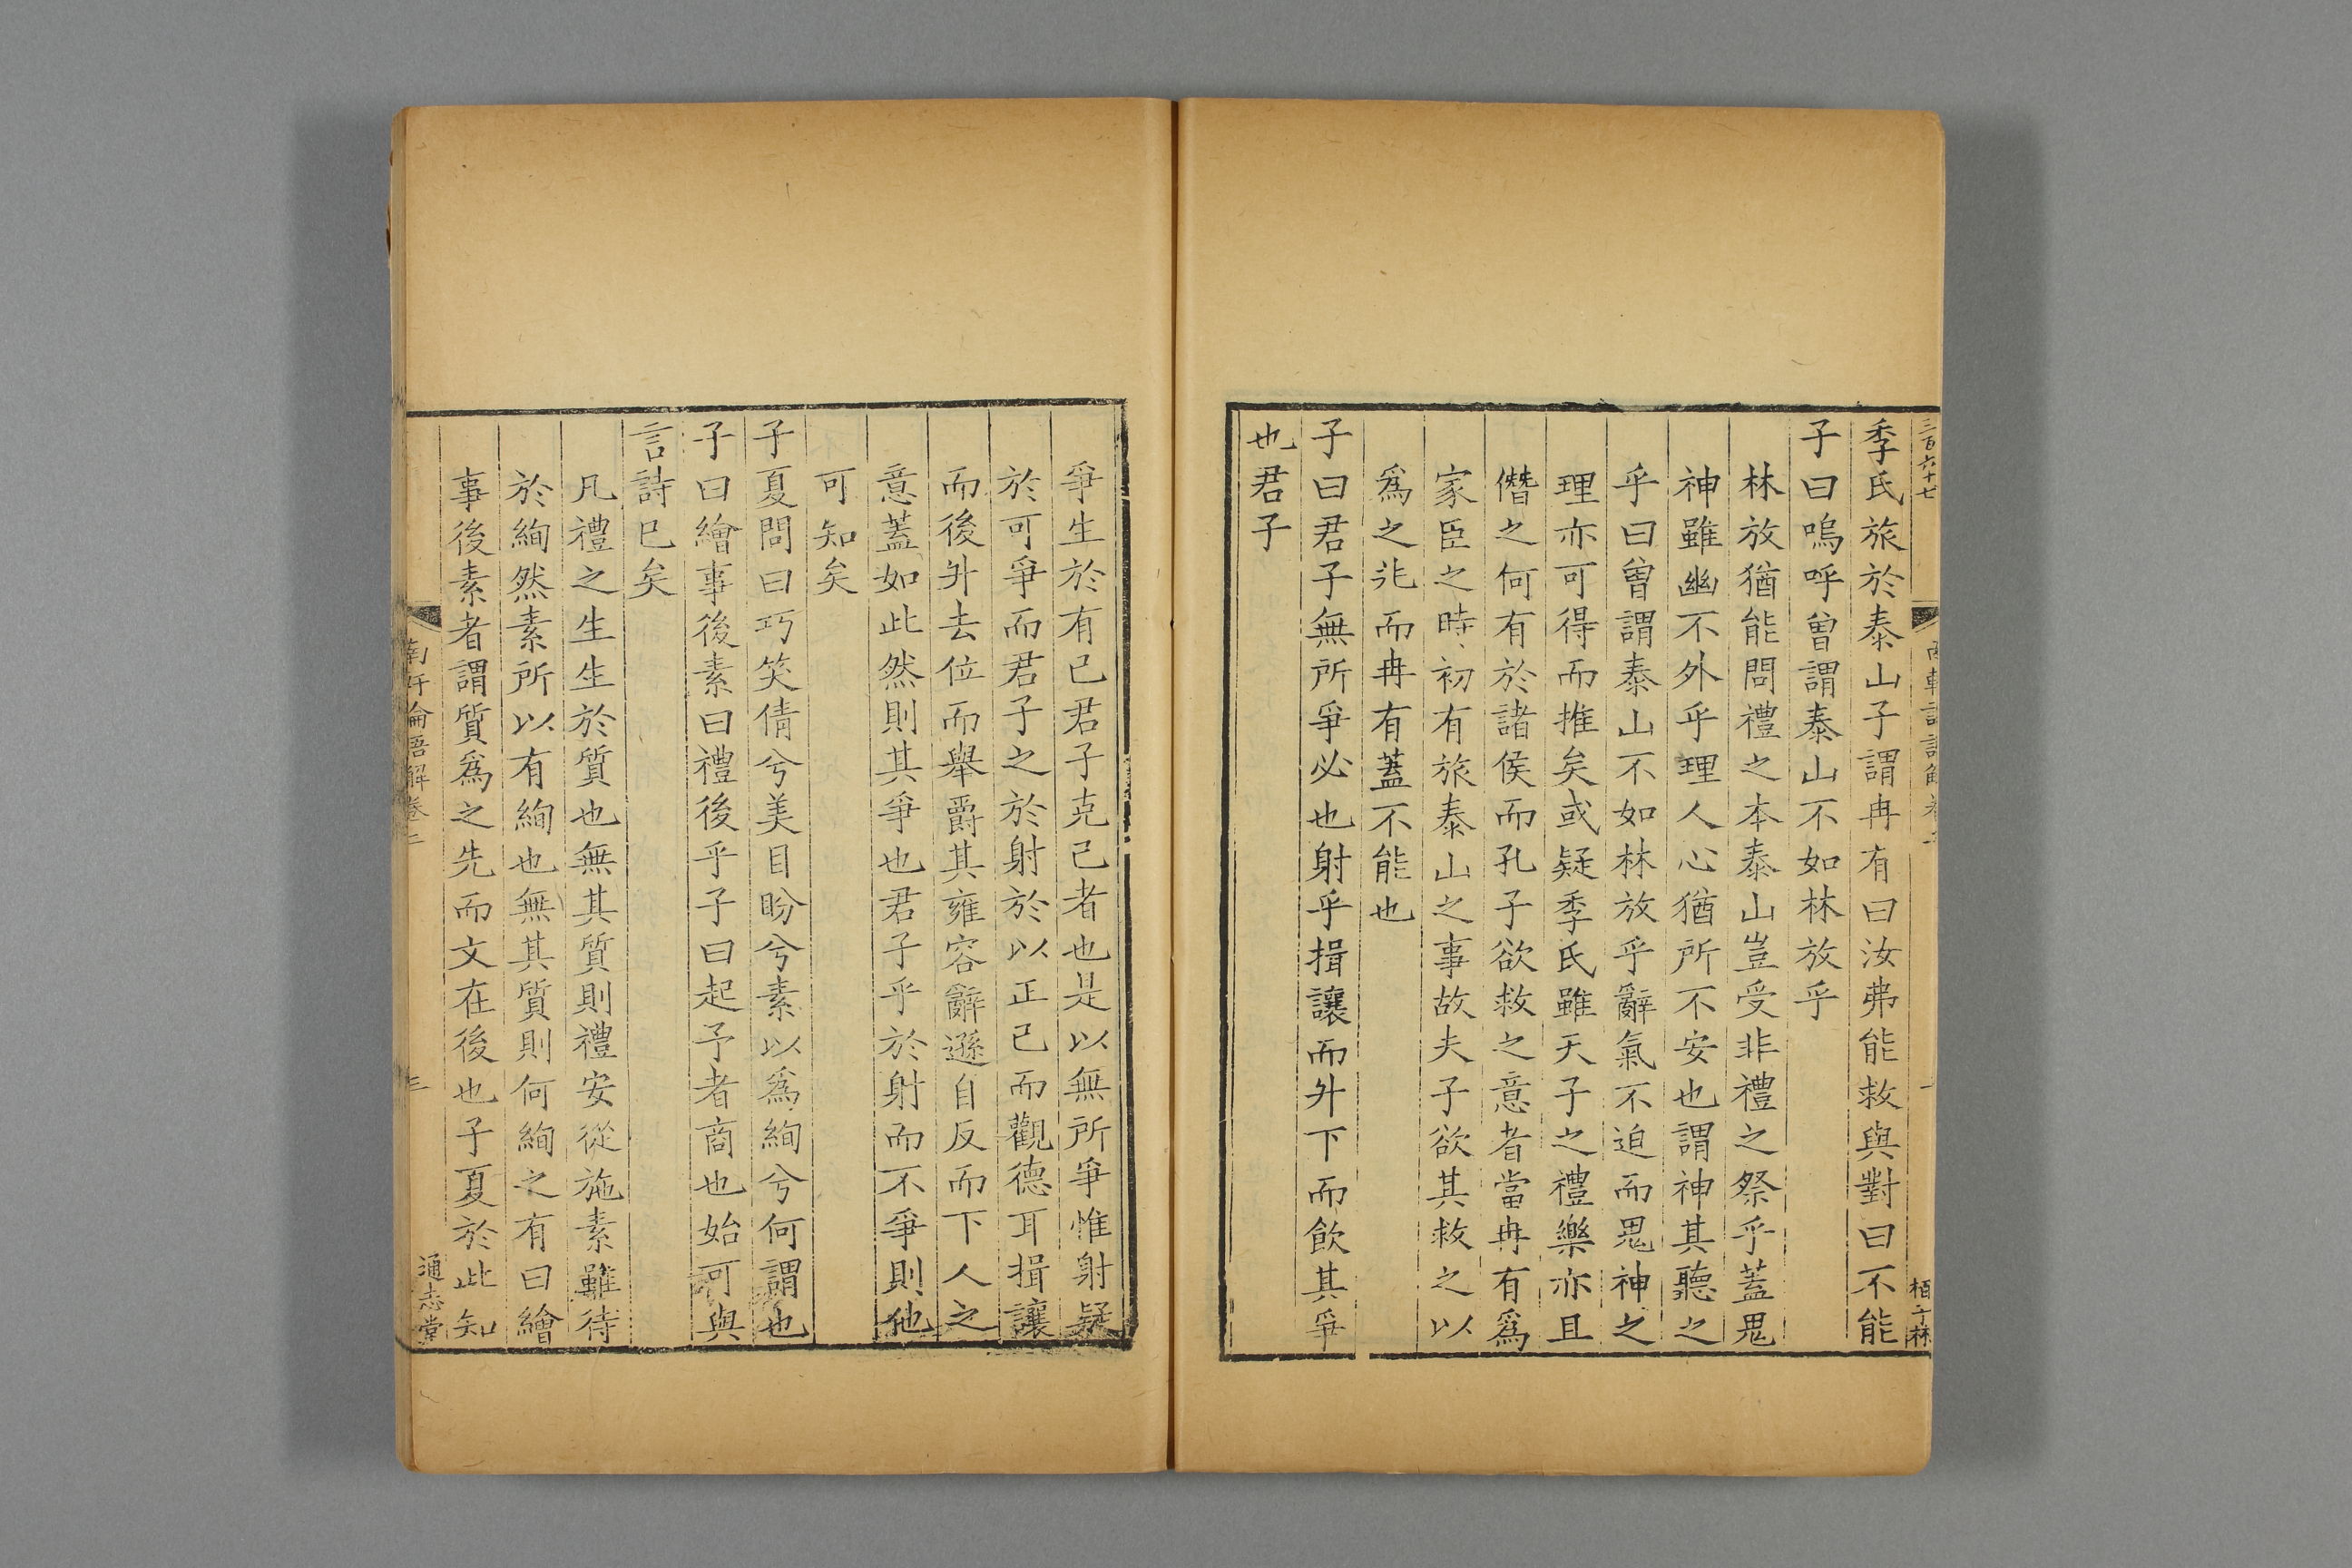 三百六十七
季氏旅於泰山子謂冉有曰汝弗能救與對曰不能
子曰嗚呼曾謂泰山不如林放乎
林放猶能問禮之本泰山豈受非禮之祭乎蓋鬼
神雖幽不外乎理人心猶所不安也謂神其聽之
乎曰曾謂泰山不如林放乎辭氣不迫而鬼神之
理亦可得而推矣或疑季氏雖天子之禮樂亦且
僭之何有於諸侯而孔子欲救之意者當冉有爲
家臣之時初有旅泰山之事故夫子欲其救之以
爲之兆而冉有蓋不能也
子曰君子無所爭必也射乎揖讓而升下而飲其爭
也君子
爭生於有己君子克己者也是以無所爭惟射疑
於可爭而君子之於射於以正己而觀德耳揖讓
而後升去位而舉爵其雍容辭遜自反而下人之
意蓋如此然則其爭也君子乎於射而不爭則他
可知矣
子夏問曰巧笑倩兮美目盼兮素以爲絢兮何謂也
子曰繪事後素曰禮後乎子曰起予者商也始可與
言詩已矣
凡禮之生生於質也無其質則禮安從施素雖待
於絢然素所以有絢也無其質則何絢之有曰繪
事後素者謂質爲之先而文在後也子夏於此知
南軒論語解卷二
三
通志堂